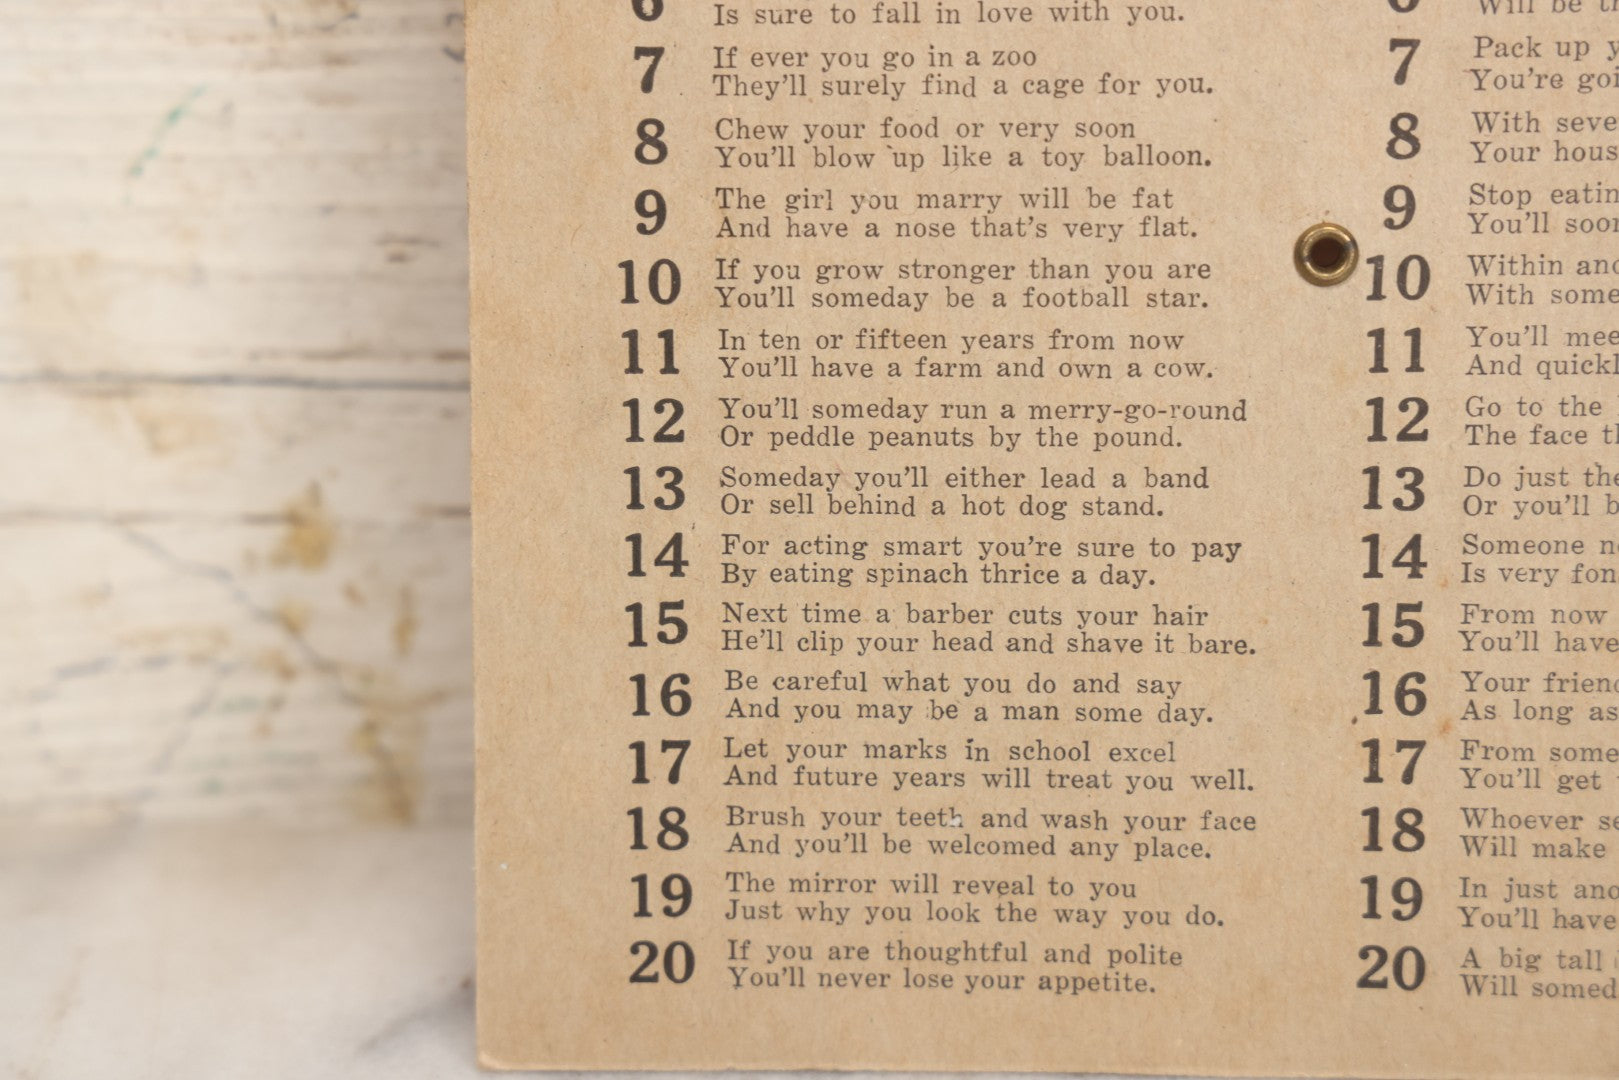 6 Is sure to fall in love with you.
7 If ever you go in a zoo
They'll surely find a cage for you.
8 Chew your food or very soon
You'll blow up like a toy balloon.
9 The girl you marry will be fat
And have a nose that's very flat.
10 If you grow stronger than you are
You'll someday be a football star.
11 In ten or fifteen years from now
You'll have a farm and own a cow.
12 You'll someday run a merry-go-round
Or peddle peanuts by the pound.
13 Someday you'll either lead a band
Or sell behind a hot dog stand.
14 For acting smart you're sure to pay
By eating spinach thrice a day.
15 Next time a barber cuts your hair
He'll clip your head and shave it bare.
16 Be careful what you do and say
And you may be a man some day.
17 Let your marks in school excel
And future years will treat you well.
18 Brush your teeth and wash your face
And you'll be welcomed any place.
19 The mirror will reveal to you
Just why you look the way you do.
20 If you are thoughtful and polite
You'll never lose your appetite.
6 Will be
7 Pack up
You're
8 With
Your
9 Stop
You'll
10 Within
With
11 You'll
And
12 Go to the
The face
13 Do just
Or you'll
14 Someone
Is very
15 From now
You'll have
16 Your
As long as
17 From
You'll get
18 Whoever
Will make
19 In just
You'll have
20 A big tall
Will